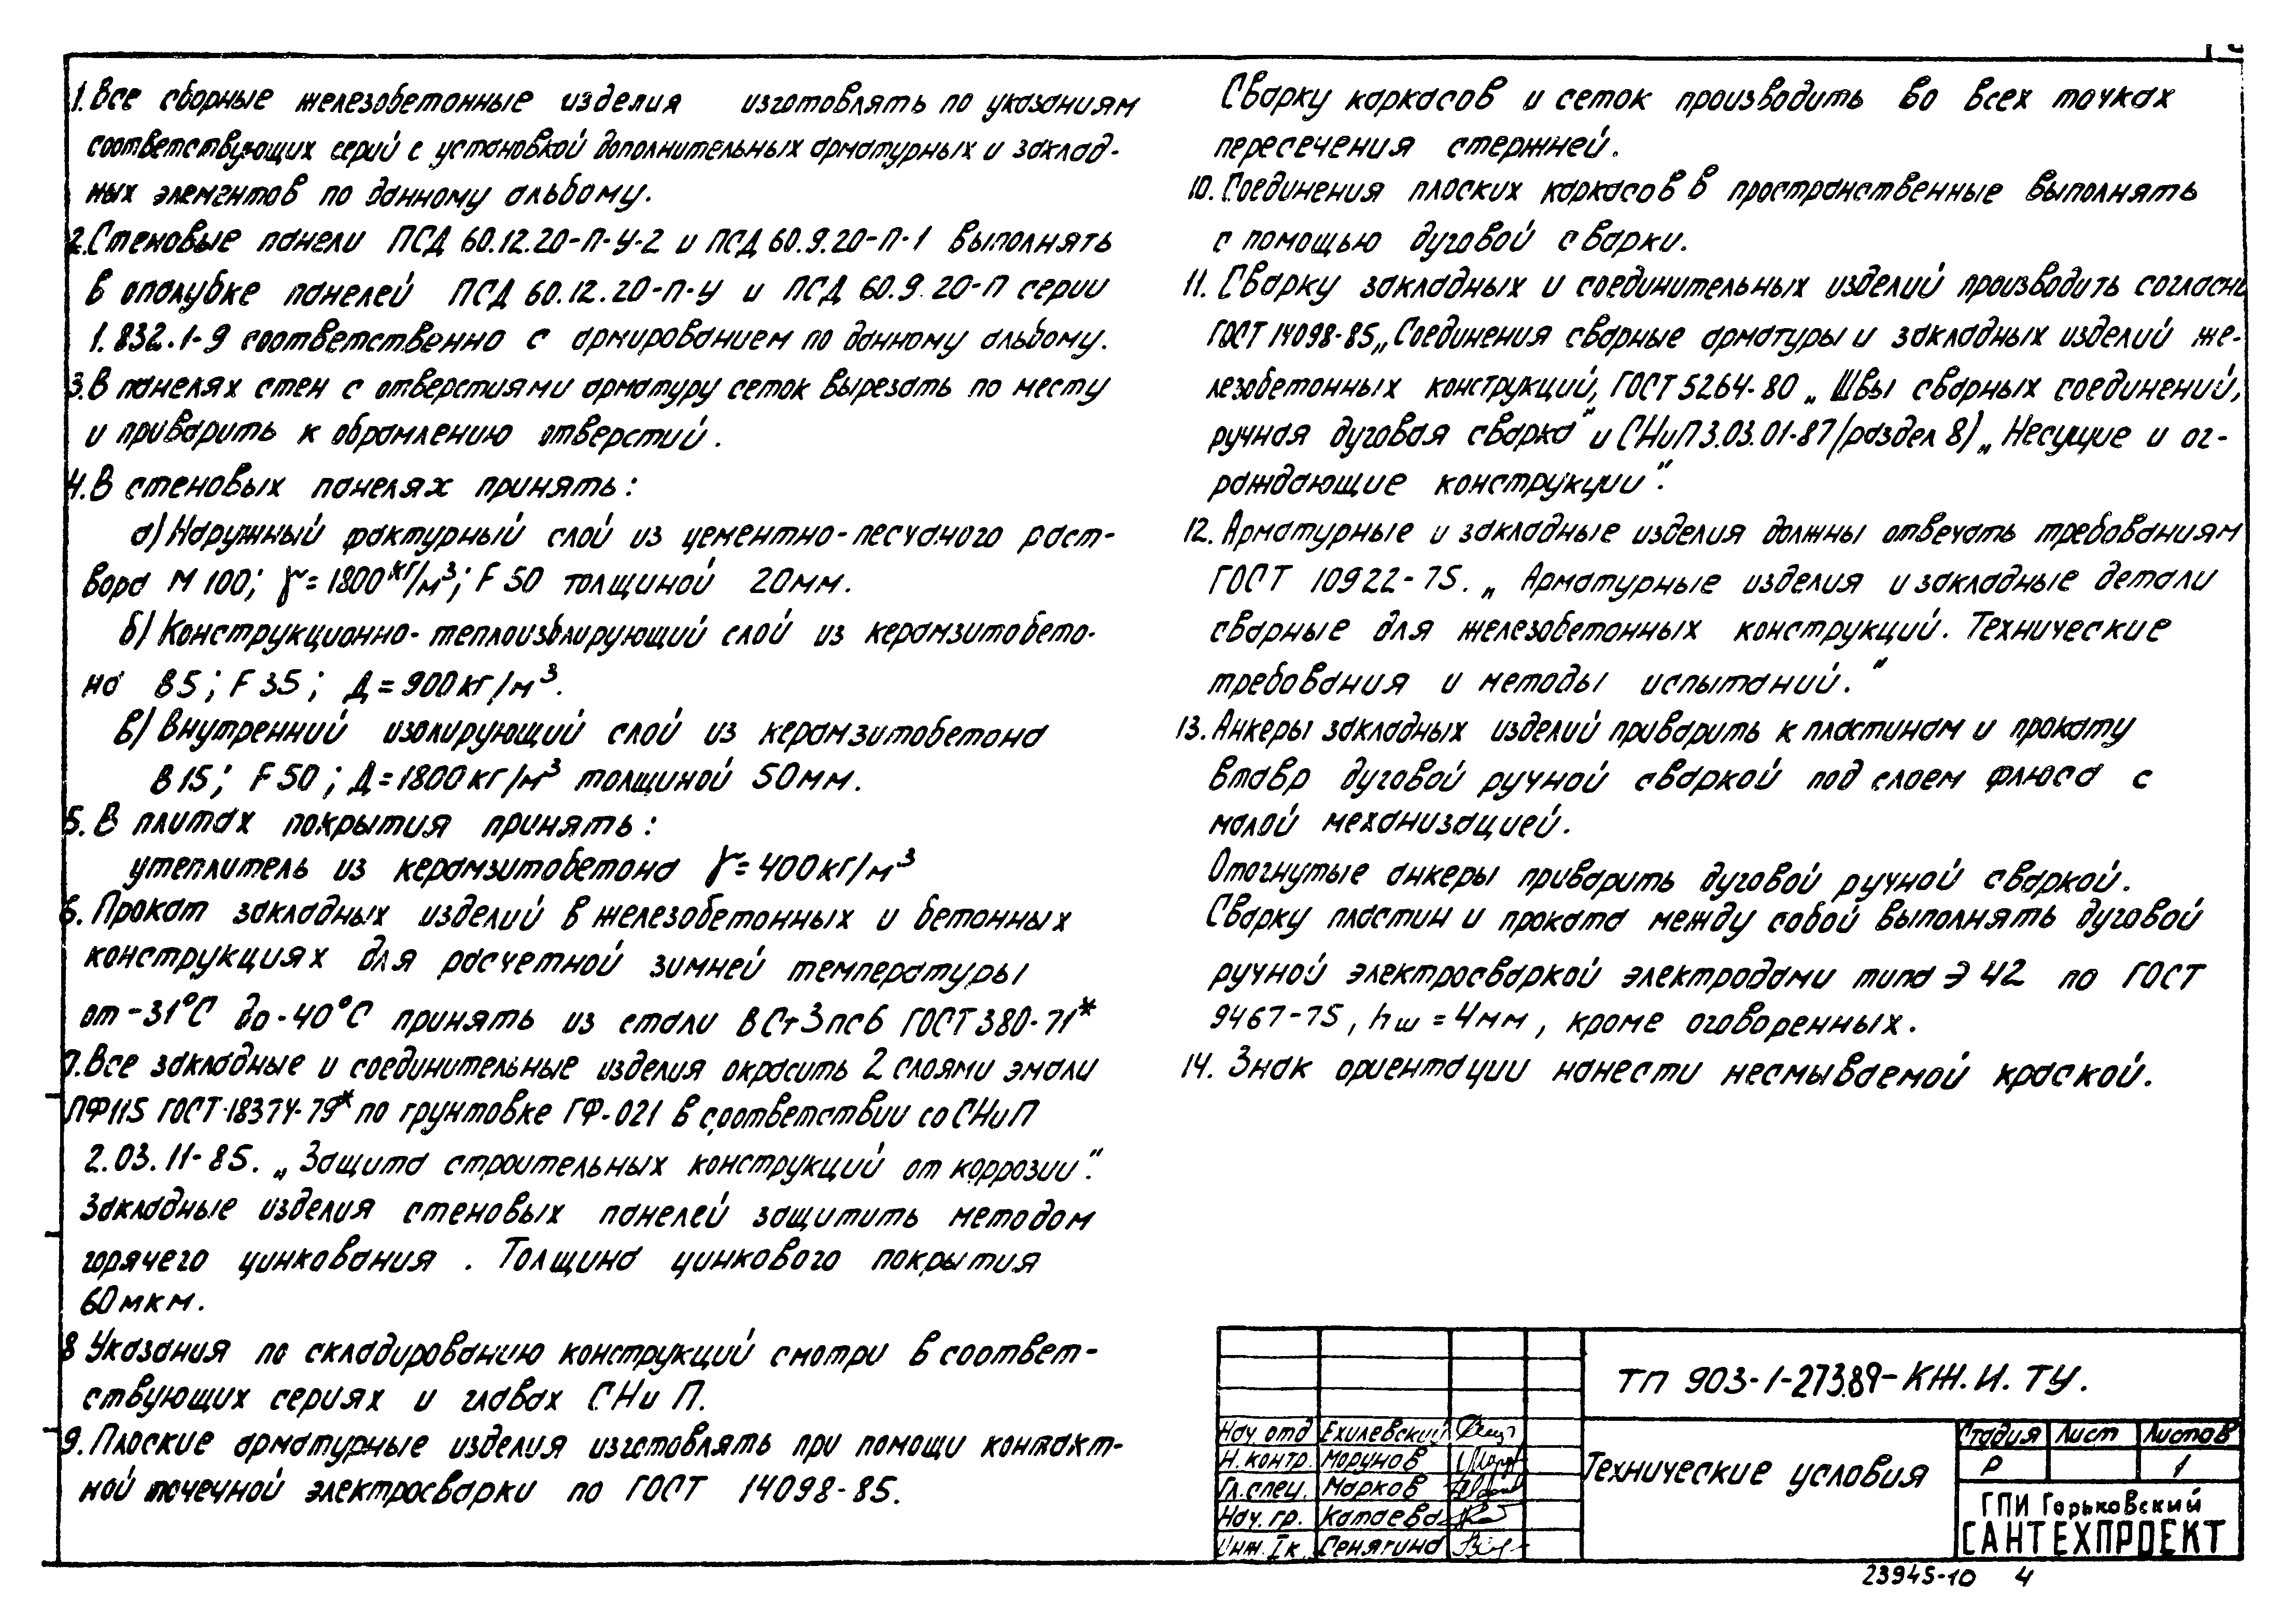 1. Все сборные железобетонные изделия изготовлять по указаниям
соответствующих серий с установкой дополнительных арматурных и заклад-
ных элементов по данному альбому.
2. Стеновые панели ПСД 60.12.20-П-У-2 и ПСД 60.9.20-П-1 выполнять
в опалубке панелей ПСД 60.12.20-П-У и ПСД 60.9.20-П серии
1.832.1-9 соответственно с армированием по данному альбому.
3. В панелях стен с отверстиями арматуру сеток вырезать по месту
и приварить к обрамлению отверстий.
4. В стеновых панелях принять:
а) Наружный фактурный слой из цементно-песчаного раст-
вора М 100; γ=1800 кг/м³; F 50 толщиной 20мм.
б) Конструкционно-теплоизолирующий слой из керамзитобето-
на В5; F 35; Д=900кг/м³.
в) Внутренний изолирующий слой из керамзитобетона
В 15; F 50; Д=1800кг/м³ толщиной 50мм.
5. В плитах покрытия принять:
утеплитель из керамзитобетона γ=400кг/м³
6. Прокат закладных изделий в железобетонных и бетонных
конструкциях для расчетной зимней температуры
от -31°С до -40°С принять из стали ВСт3пс6 ГОСТ 380-71*
7. Все закладные и соединительные изделия окрасить 2 слоями эмали
ПФ115 ГОСТ-18374-79* по грунтовке ГФ-021 в соответствии со СНиП
2.03.11-85. „Защита строительных конструкций от коррозии".
Закладные изделия стеновых панелей защитить методом
горячего цинкования. Толщина цинкового покрытия
60мкм.
8 Указания по складированию конструкций смотри в соответ-
ствующих сериях и главах СНиП.
9. Плоские арматурные изделия изготовлять при помощи контакт-
ной точечной электросварки по ГОСТ 14098-85.
Сварку каркасов и сеток производить во всех точках
пересечения стержней.
10. Соединения плоских каркасов в пространственные выполнять
с помощью дуговой сварки.
11. Сварку закладных и соединительных изделий производить согласн
ГОСТ 14098-85 „Соединения сварные арматуры и закладных изделий же-
лезобетонных конструкций", ГОСТ 5264-80 „Швы сварных соединений,
ручная дуговая сварка" и СНиП 3.03.01-87 /раздел 8/ „Несущие и ог-
раждающие конструкции".
12. Арматурные и закладные изделия должны отвечать требованиям
ГОСТ 10922-75. „Арматурные изделия и закладные детали
сварные для железобетонных конструкций. Технические
требования и методы испытаний."
13. Анкеры закладных изделий приварить к пластинам и прокату
втавр дуговой ручной сваркой под слоем флюса с
малой механизацией.
Отогнутые анкеры приварить дуговой ручной сваркой.
Сварку пластин и проката между собой выполнять дуговой
ручной электросваркой электродами типа Э 42 по ГОСТ
9467-75, hш = 4мм, кроме оговоренных.
14. Знак ориентации нанести несмываемой краской.
ТП 903-1-273.89-КЖ.И.ТУ.
Нач. отд Ехилевский
Н. контр. Морунов
Гл. спец. Марков
Нач. гр. Катаева
Инж. Iк. Сенягина
Технические условия
Стадия Лист Листов
Р 1
ГПИ Горьковский
САНТЕХПРОЕКТ
23945-10 4